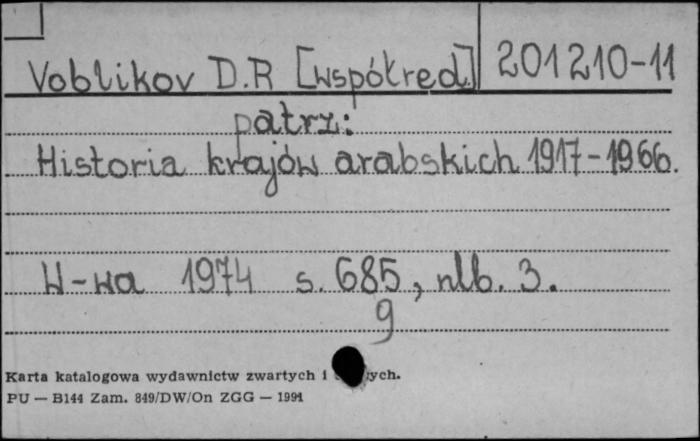 Voblikov D.R [współred.] 201210-11
patrz:
Historia krajów arabskich 1917-1966.
W-wa 1974 s. 685, nlb. 3.
9
Karta katalogowa wydawnictw zwartych i
PU — B144 Zam. 849/DW/On ZGG — 1991